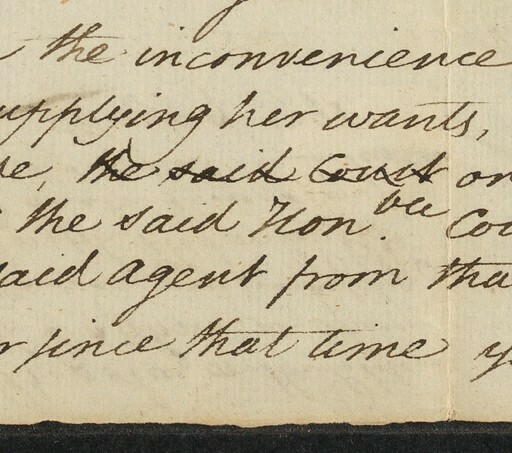 the inconvenience
upplying her wants,
the said Court on
the said Hon.ble Cou
said agent from tha
r since that time y